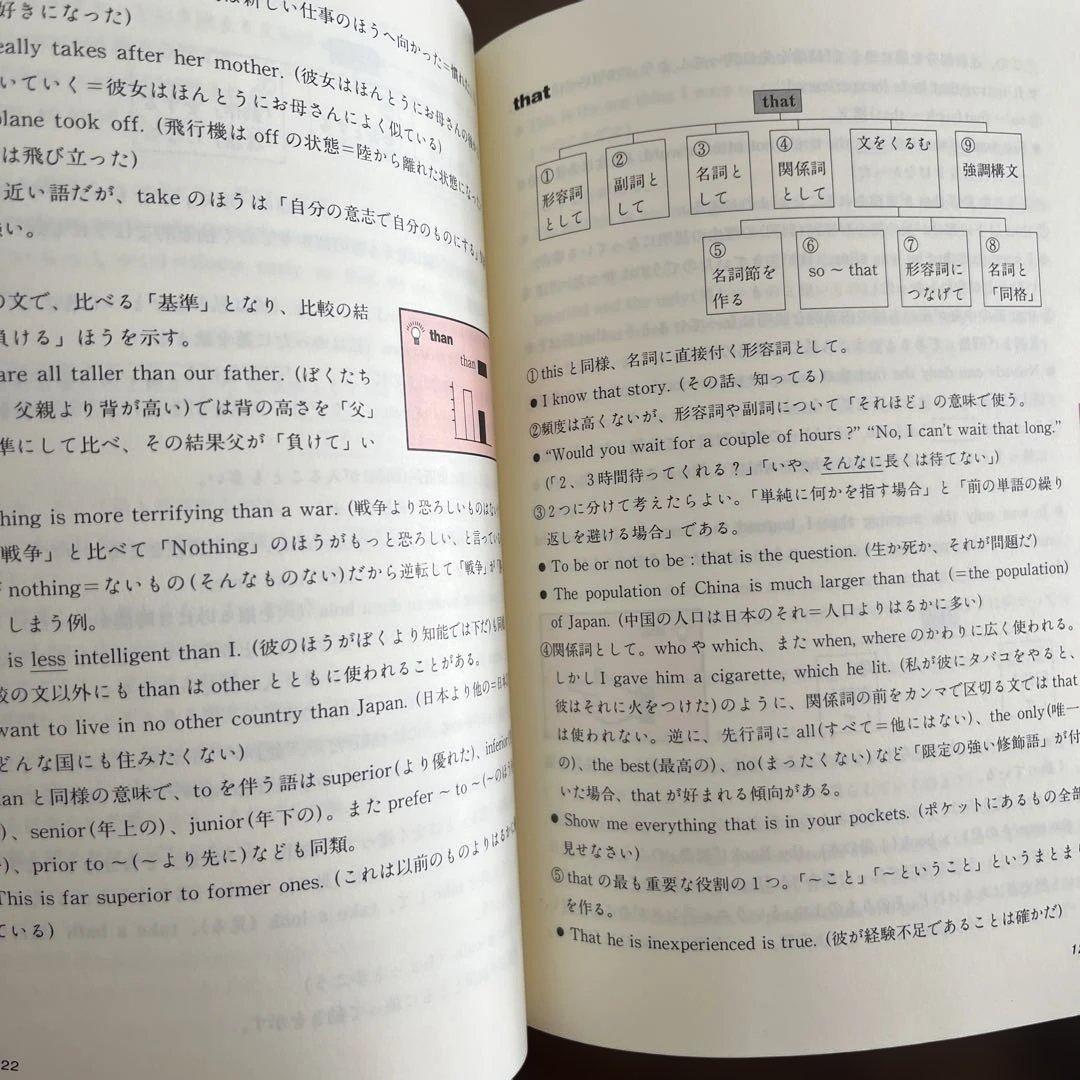 好きになった)
新しい仕事のほうへ向かった＝慣れた
eally takes after her mother. (彼女はほんとうにお母さんの後
いていく＝彼女はほんとうにお母さんによく似ている)
plane took off. (飛行機は off の状態＝陸から離れた状態になった
は飛び立った)
近い語だが、take のほうは「自分の意志で自分のものにする」
強い。
の文で、比べる「基準」となり、比較の結
負ける」ほうを示す。
are all taller than our father. (ぼくたち
父親より背が高い)では背の高さを「父」
準にして比べ、その結果父が「負けて」い
than
than
hing is more terrifying than a war. (戦争より恐ろしいものはない
戦争」と比べて「Nothing」のほうがもっと恐ろしい、と言ってい
nothing＝ないもの(そんなものない)だから逆転して「戦争」が
しまう例。
is less intelligent than I. (彼のほうがぼくより知能では下だ)も同
較の文以外にも than は other とともに使われることがある。
want to live in no other country than Japan. (日本より他の＝日本
どんな国にも住みたくない)
an と同様の意味で、to を伴う語は superior(より優れた)、inferior
)、senior(年上の)、junior(年下の)。また prefer ～ to ～(～のほう
)、prior to ～(～より先に)なども同類。
This is far superior to former ones. (これは以前のものよりはるかに
ている)
22
that
that
①形容詞として
②副詞として
③名詞として
④関係詞として
文をくるむ
⑨強調構文
⑤名詞節を作る
⑥so ～ that
⑦形容詞につなげて
⑧名詞と「同格」
①this と同様、名詞に直接付く形容詞として。
● I know that story. (その話、知ってる)
②頻度は高くないが、形容詞や副詞について「それほど」の意味で使う。
● “Would you wait for a couple of hours ?” “No, I can’t wait that long.”
(「2、3時間待ってくれる？」「いや、そんなに長くは待てない」)
③2つに分けて考えたらよい。「単純に何かを指す場合」と「前の単語の繰り
返しを避ける場合」である。
● To be or not to be : that is the question. (生か死か、それが問題だ)
● The population of China is much larger than that (＝the population)
of Japan. (中国の人口は日本のそれ＝人口よりはるかに多い)
④関係詞として。who や which、また when, where のかわりに広く使われる。
しかし I gave him a cigarette, which he lit. (私が彼にタバコをやると、
彼はそれに火をつけた)のように、関係詞の前をカンマで区切る文では that
は使われない。逆に、先行詞に all(すべて＝他にはない)、the only(唯一
の)、the best(最高の)、no(まったくない)など「限定の強い修飾語」が付
いた場合、that が好まれる傾向がある。
● Show me everything that is in your pockets. (ポケットにあるもの全部
見せなさい)
⑤that の最も重要な役割の1つ。「～こと」「～ということ」というまとまり
を作る。
● That he is inexperienced is true. (彼が経験不足であることは確かだ)